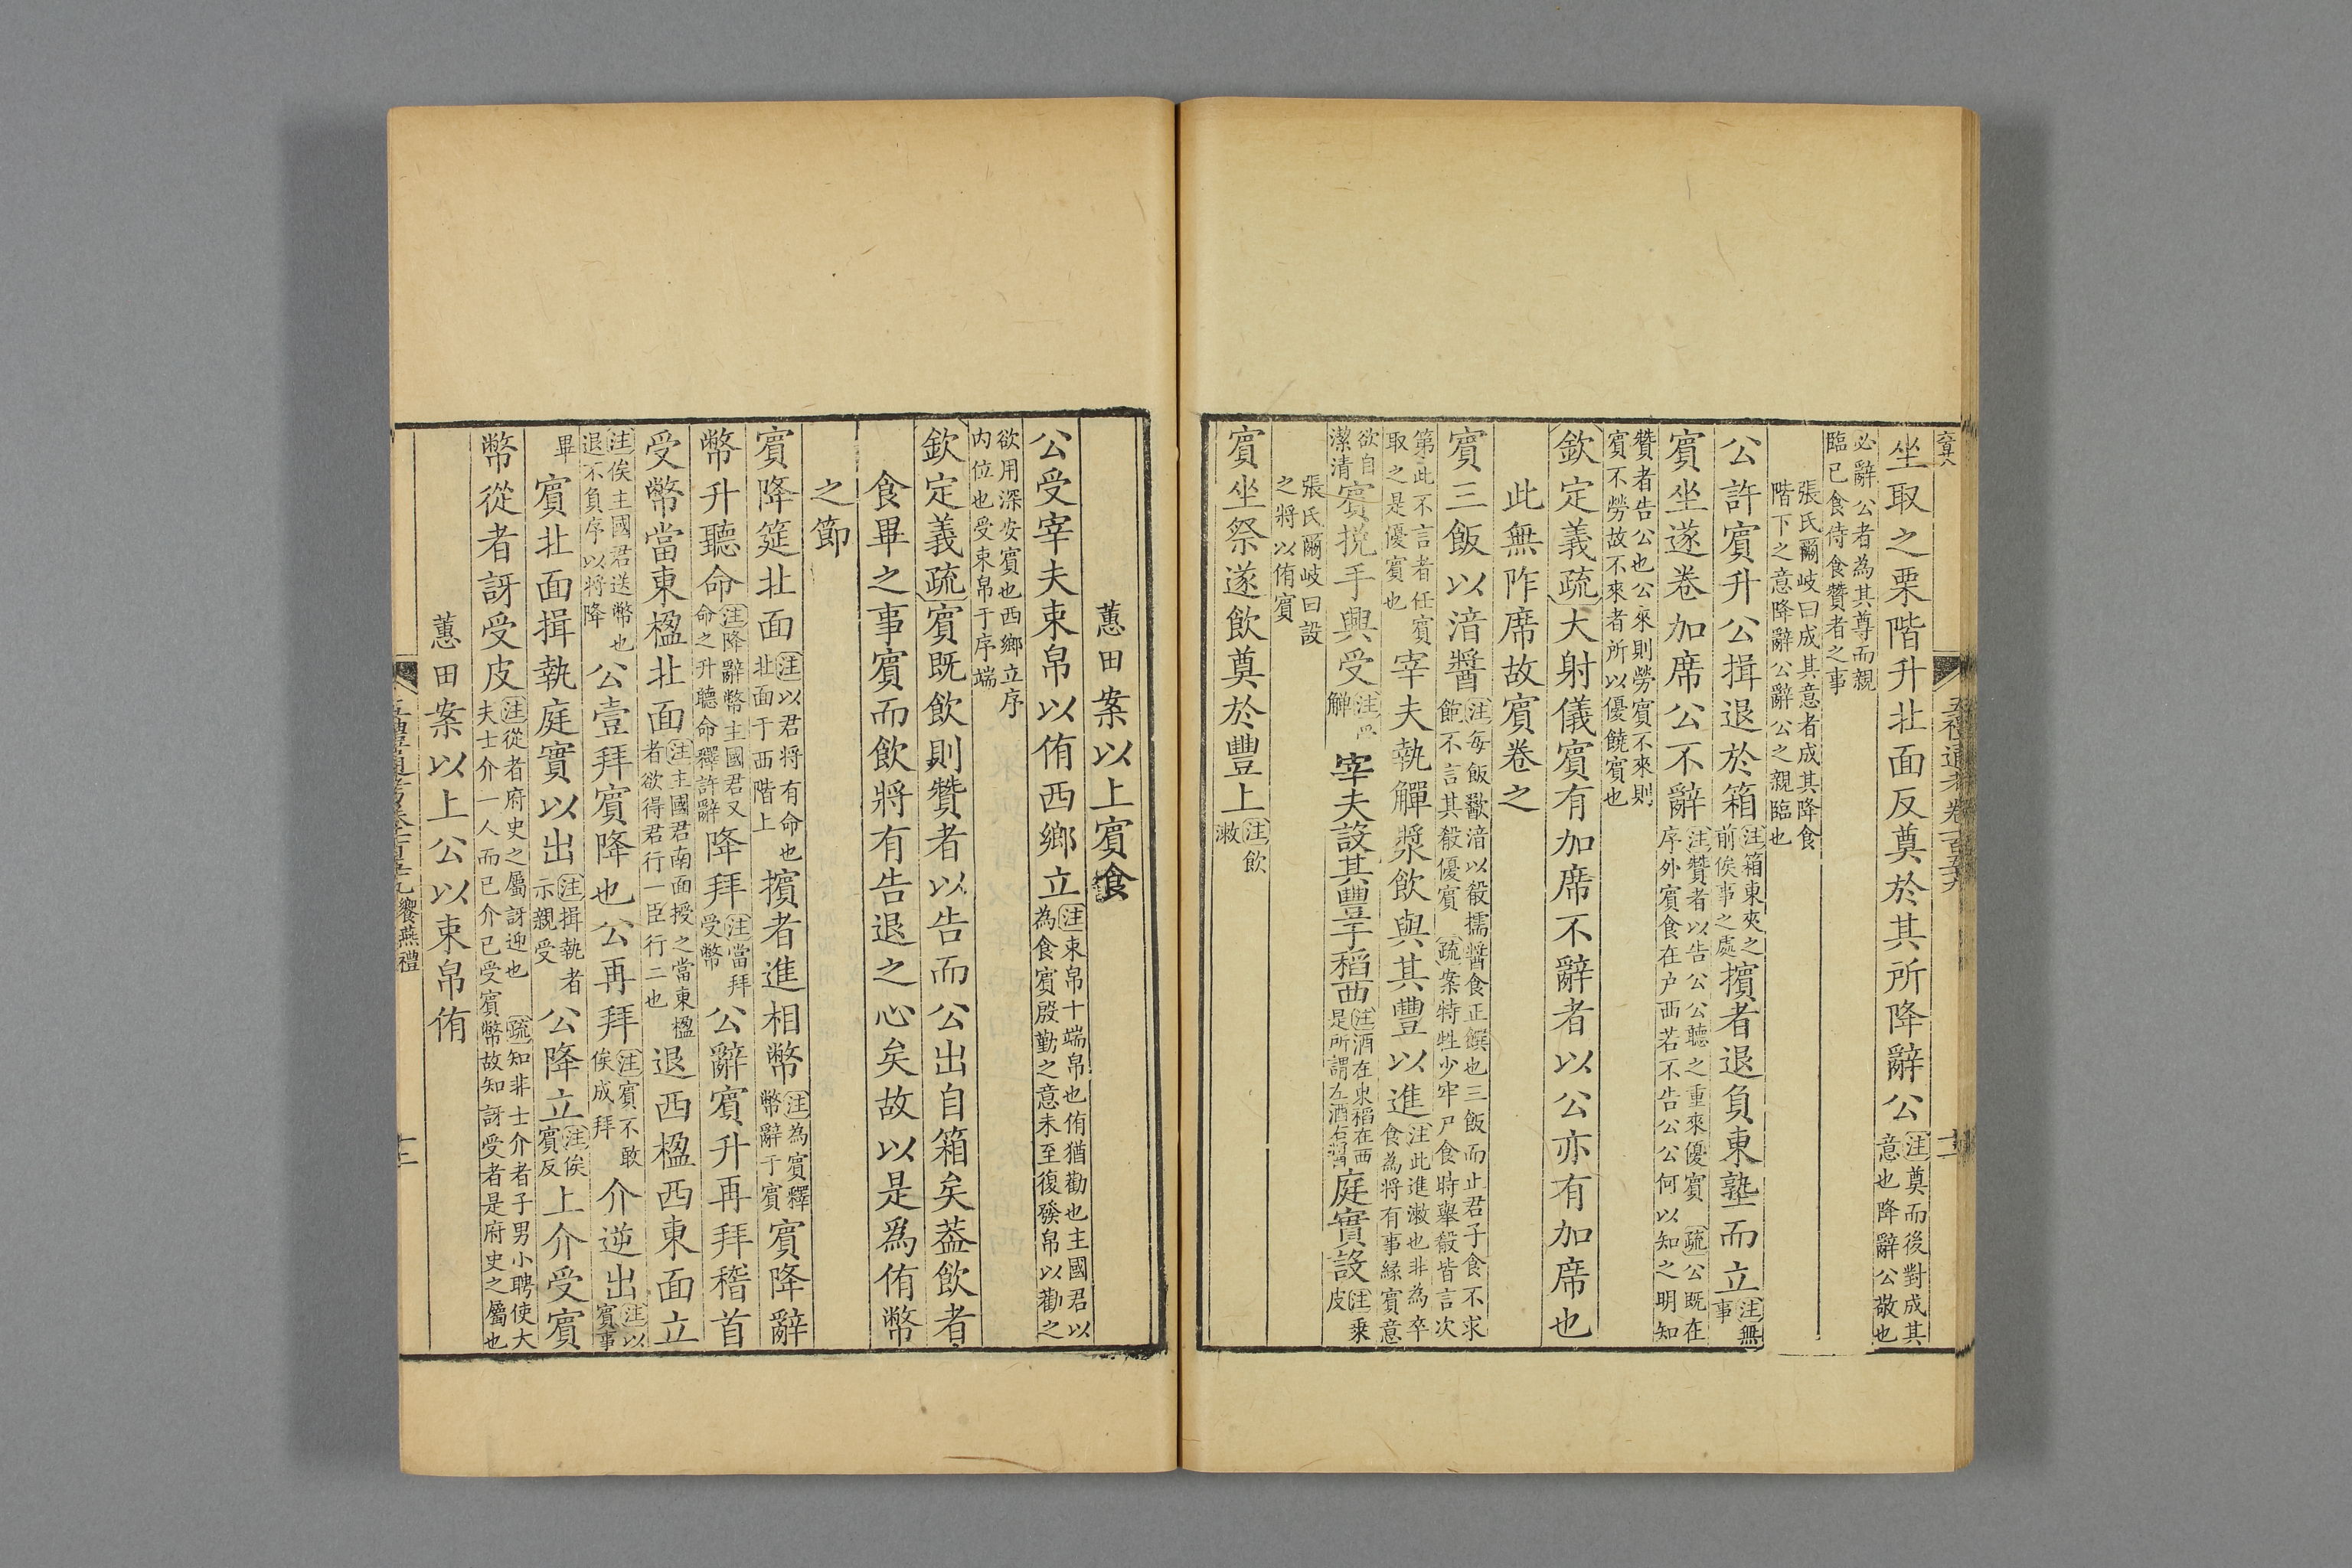 坐取之栗階升北面反奠於其所降辭公注奠而後對成其意也降辭公敬也
必辭公者為其尊而親臨已食侍食贊者之事
張氏爾岐曰成其意者成其降食階下之意降辭公辭公之親臨也
公許賓升公揖退於箱注箱東夾之前俟事之處擯者退負東塾而立注無事
賓坐遂卷加席公不辭注贊者以告公公聽之重來優賓疏公既在序外賓食在户西若不告公公何以知之明知
贊者告公也公來則勞賓不來則賓不勞故不來者所以優饒賓也
欽定義疏大射儀賓有加席不辭者以公亦有加席也
此無阼席故賓卷之
賓三飯以湆醬注每飯歠湆以殽擩醬食正饌也三飯而止君子食不求飽不言其殽優賓疏案特牲少牢尸食時舉殽皆言次
第此不言者任賓取之是優賓也宰夫執觶漿飲與其豐以進注此進漱也非為卒食為將有事緣賓意
欲自潔清賓挩手興受注受觶宰夫設其豐于稻西注酒在東稻在西是所謂左酒右漿庭實設注乘皮
張氏爾岐曰設之將以侑賓
賓坐祭遂飲奠於豐上注飲漱
蕙田案以上賓食
公受宰夫束帛以侑西鄉立注束帛十端帛也侑猶勸也主國君以為食賓殷勤之意未至復發帛以勸之
欲用深安賓也西鄉立序内位也受束帛于序端
欽定義疏賓既飲則贊者以告而公出自箱矣葢飲者
食畢之事賓而飲將有告退之心矣故以是爲侑幣
之節
賓降筵北面注以君將有命也北面于西階上擯者進相幣注為賓釋幣辭于賓賓降辭
幣升聽命注降辭幣主國君又命之升聽命釋許辭降拜注當拜受幣公辭賓升再拜稽首
受幣當東楹北面注主國君南面授之當東楹者欲得君行一臣行二也退西楹西東面立
注俟主國君送幣也退不負序以將降公壹拜賓降也公再拜注賓不敢俟成拜介逆出注以賓事
畢賓北面揖執庭實以出注揖執者示親受公降立注俟賓反上介受賓
幣從者訝受皮注從者府史之屬訝迎也疏知非士介者子男小聘使大夫士介一人而已介已受賓幣故知訝受者是府史之屬也
蕙田案以上公以束帛侑